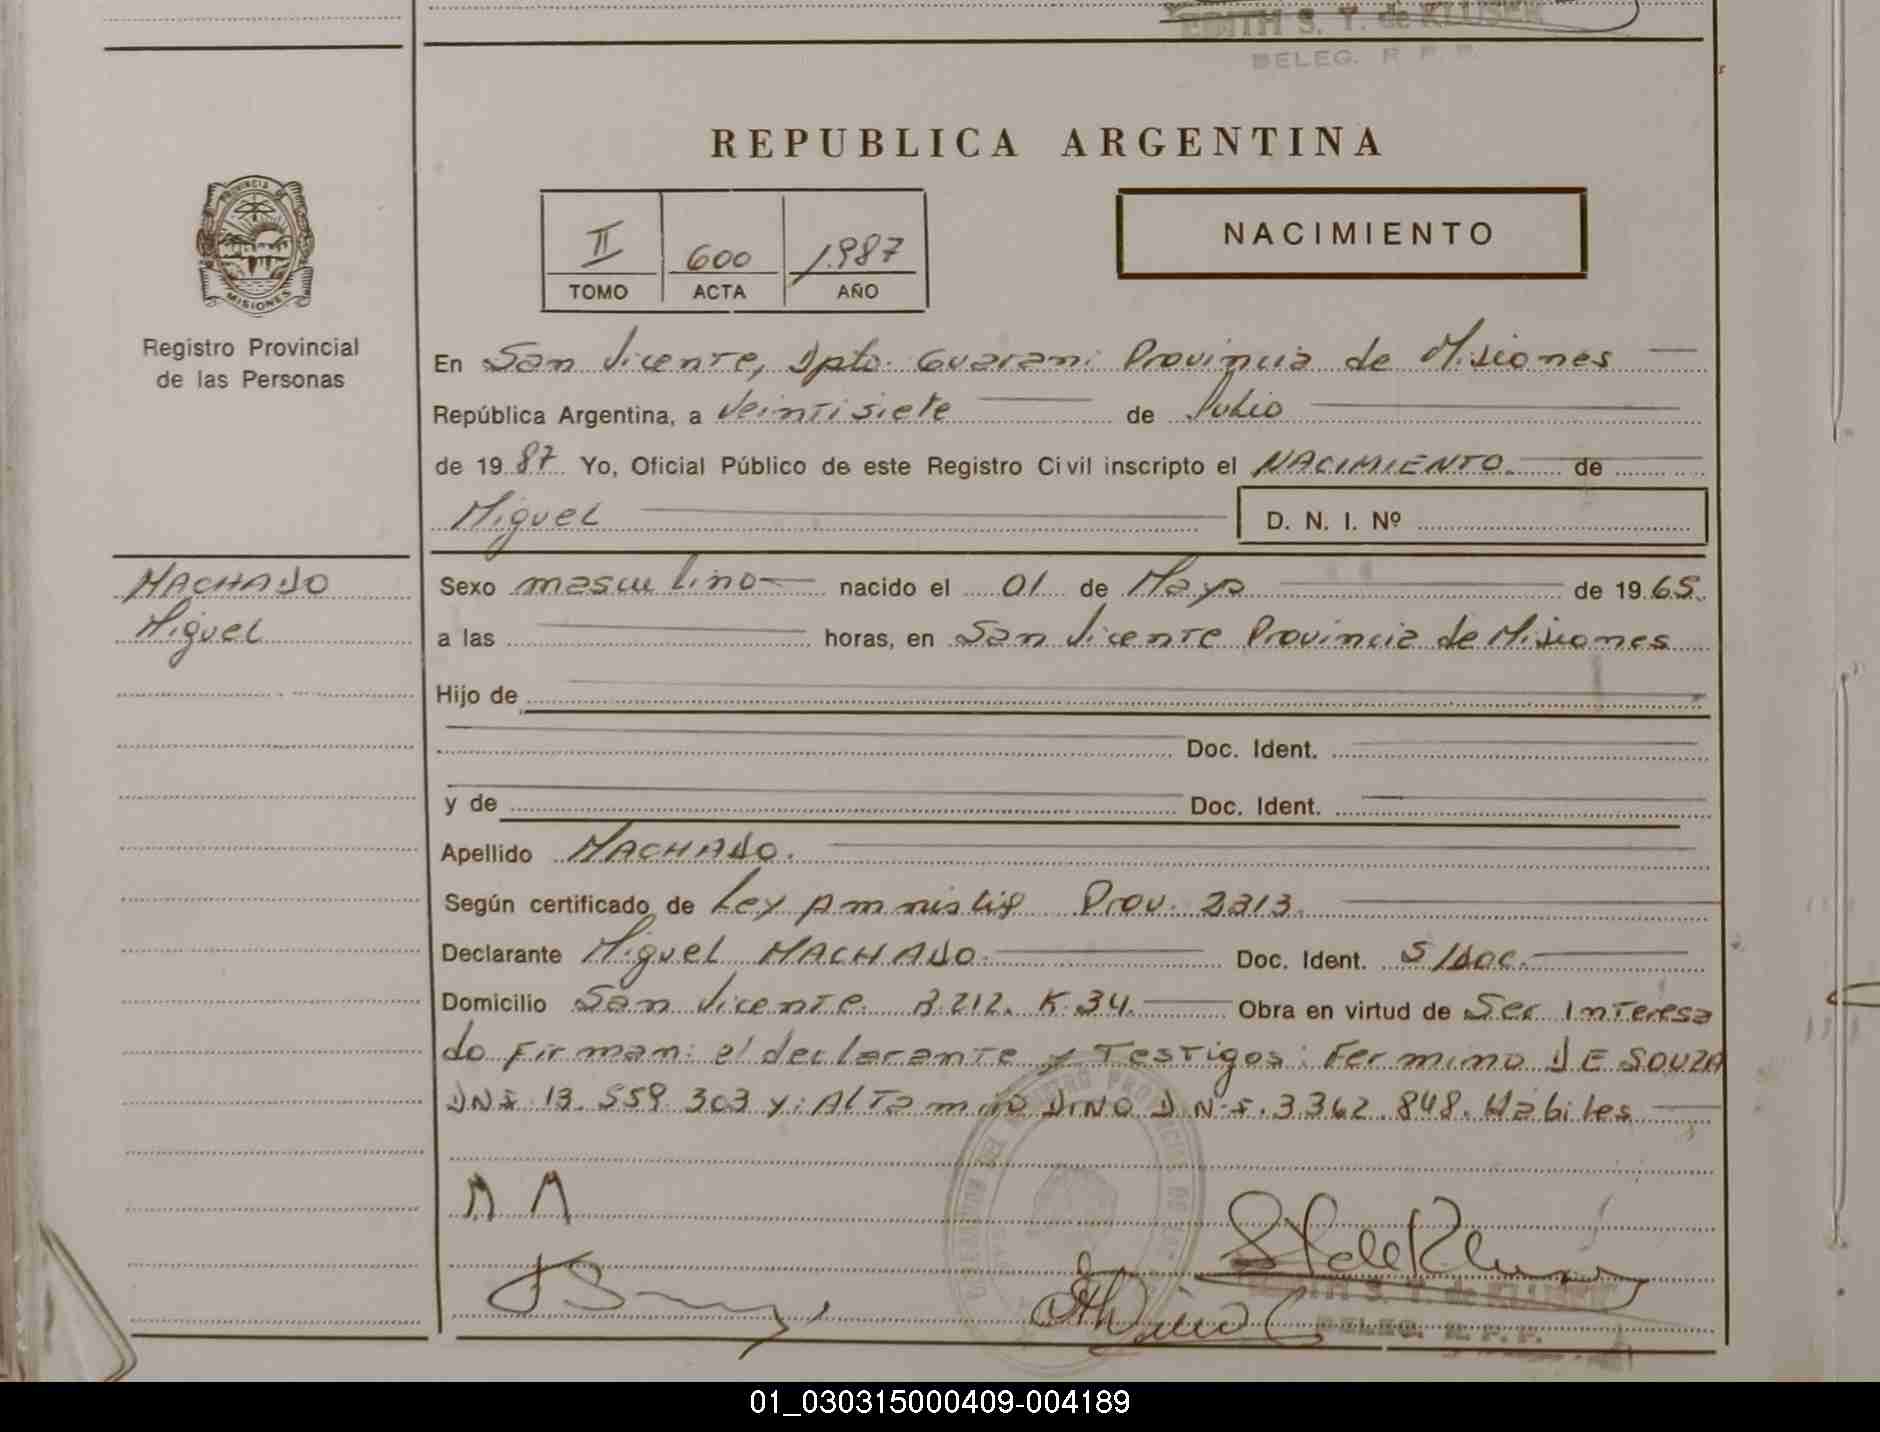 EDITH S. T. de KLUSER
DELEG. R. P. P.
REPUBLICA ARGENTINA
PROVINCIA DE
MISIONES
Registro Provincial
de las Personas
II 600 1.987
TOMO ACTA AÑO
NACIMIENTO
En San Vicente, Dpto. Guarani Provincia de Misiones
República Argentina, a veintisiete de Julio
de 1987 Yo, Oficial Público de este Registro Civil inscripto el NACIMIENTO. de
Miguel D. N. I. Nº
MACHADO
Miguel
Sexo masculino nacido el 01 de Mayo de 1965.
a las horas, en San Vicente Provincia de Misiones
Hijo de
Doc. Ident.
y de Doc. Ident.
Apellido MACHADO.
Según certificado de Ley Amnistia Prov. 2313.
Declarante Miguel MACHADO. Doc. Ident. S/doc.
Domicilio San Vicente. R.212. K.34. Obra en virtud de Ser Interesa
do Firman: el declarante y Testigos: Fermino DE SOUZA
DNI 13.559.303 y: Altamiro DINO D.N.I. 3362.848. Habiles
M M
EDITH S. T. de KLUSER
DELEG. R. P. P.
01_030315000409-004189